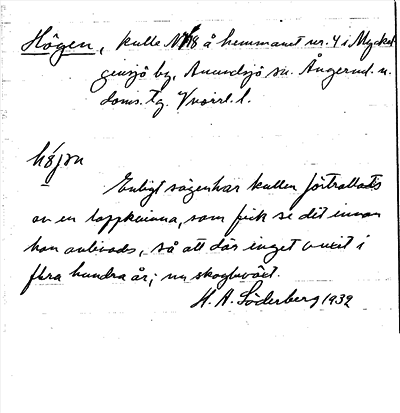 Högen, kulle N 18 å hemmanet nr. 4 i Myckel-
gensjö by, Anundsjö sn. Ångerml. n.
doms. tg. Vnorrl. l.
högən
Enligt sägen har kullen förtrollats
av en lappkvinna, som fick se det innan
hon avlivads, så att där inget vuxit i
flera hundra år; nu skogbevöxt.
H. A. Söderberg 1932